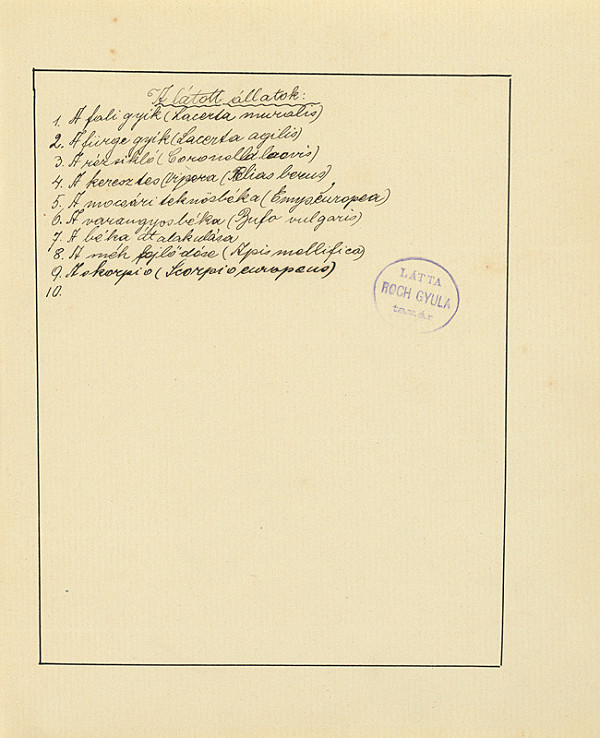 A látott állatok:
1. A fali gyík (Lacerta muralis)
2. A fürge gyík (Lacerta agilis)
3. A rézsikló (Coronella laevis)
4. A keresztes vipera (Pelias berus)
5. A mocsári teknősbéka (Emys europea)
6. A varangyosbéka (Bufo vulgaris)
7. A béka átalakulása
8. A méh fejlődése (Apis mellifica)
9. A skorpio (Scorpio europeus)
10.
LÁTTA
ROCH GYULA
tanár